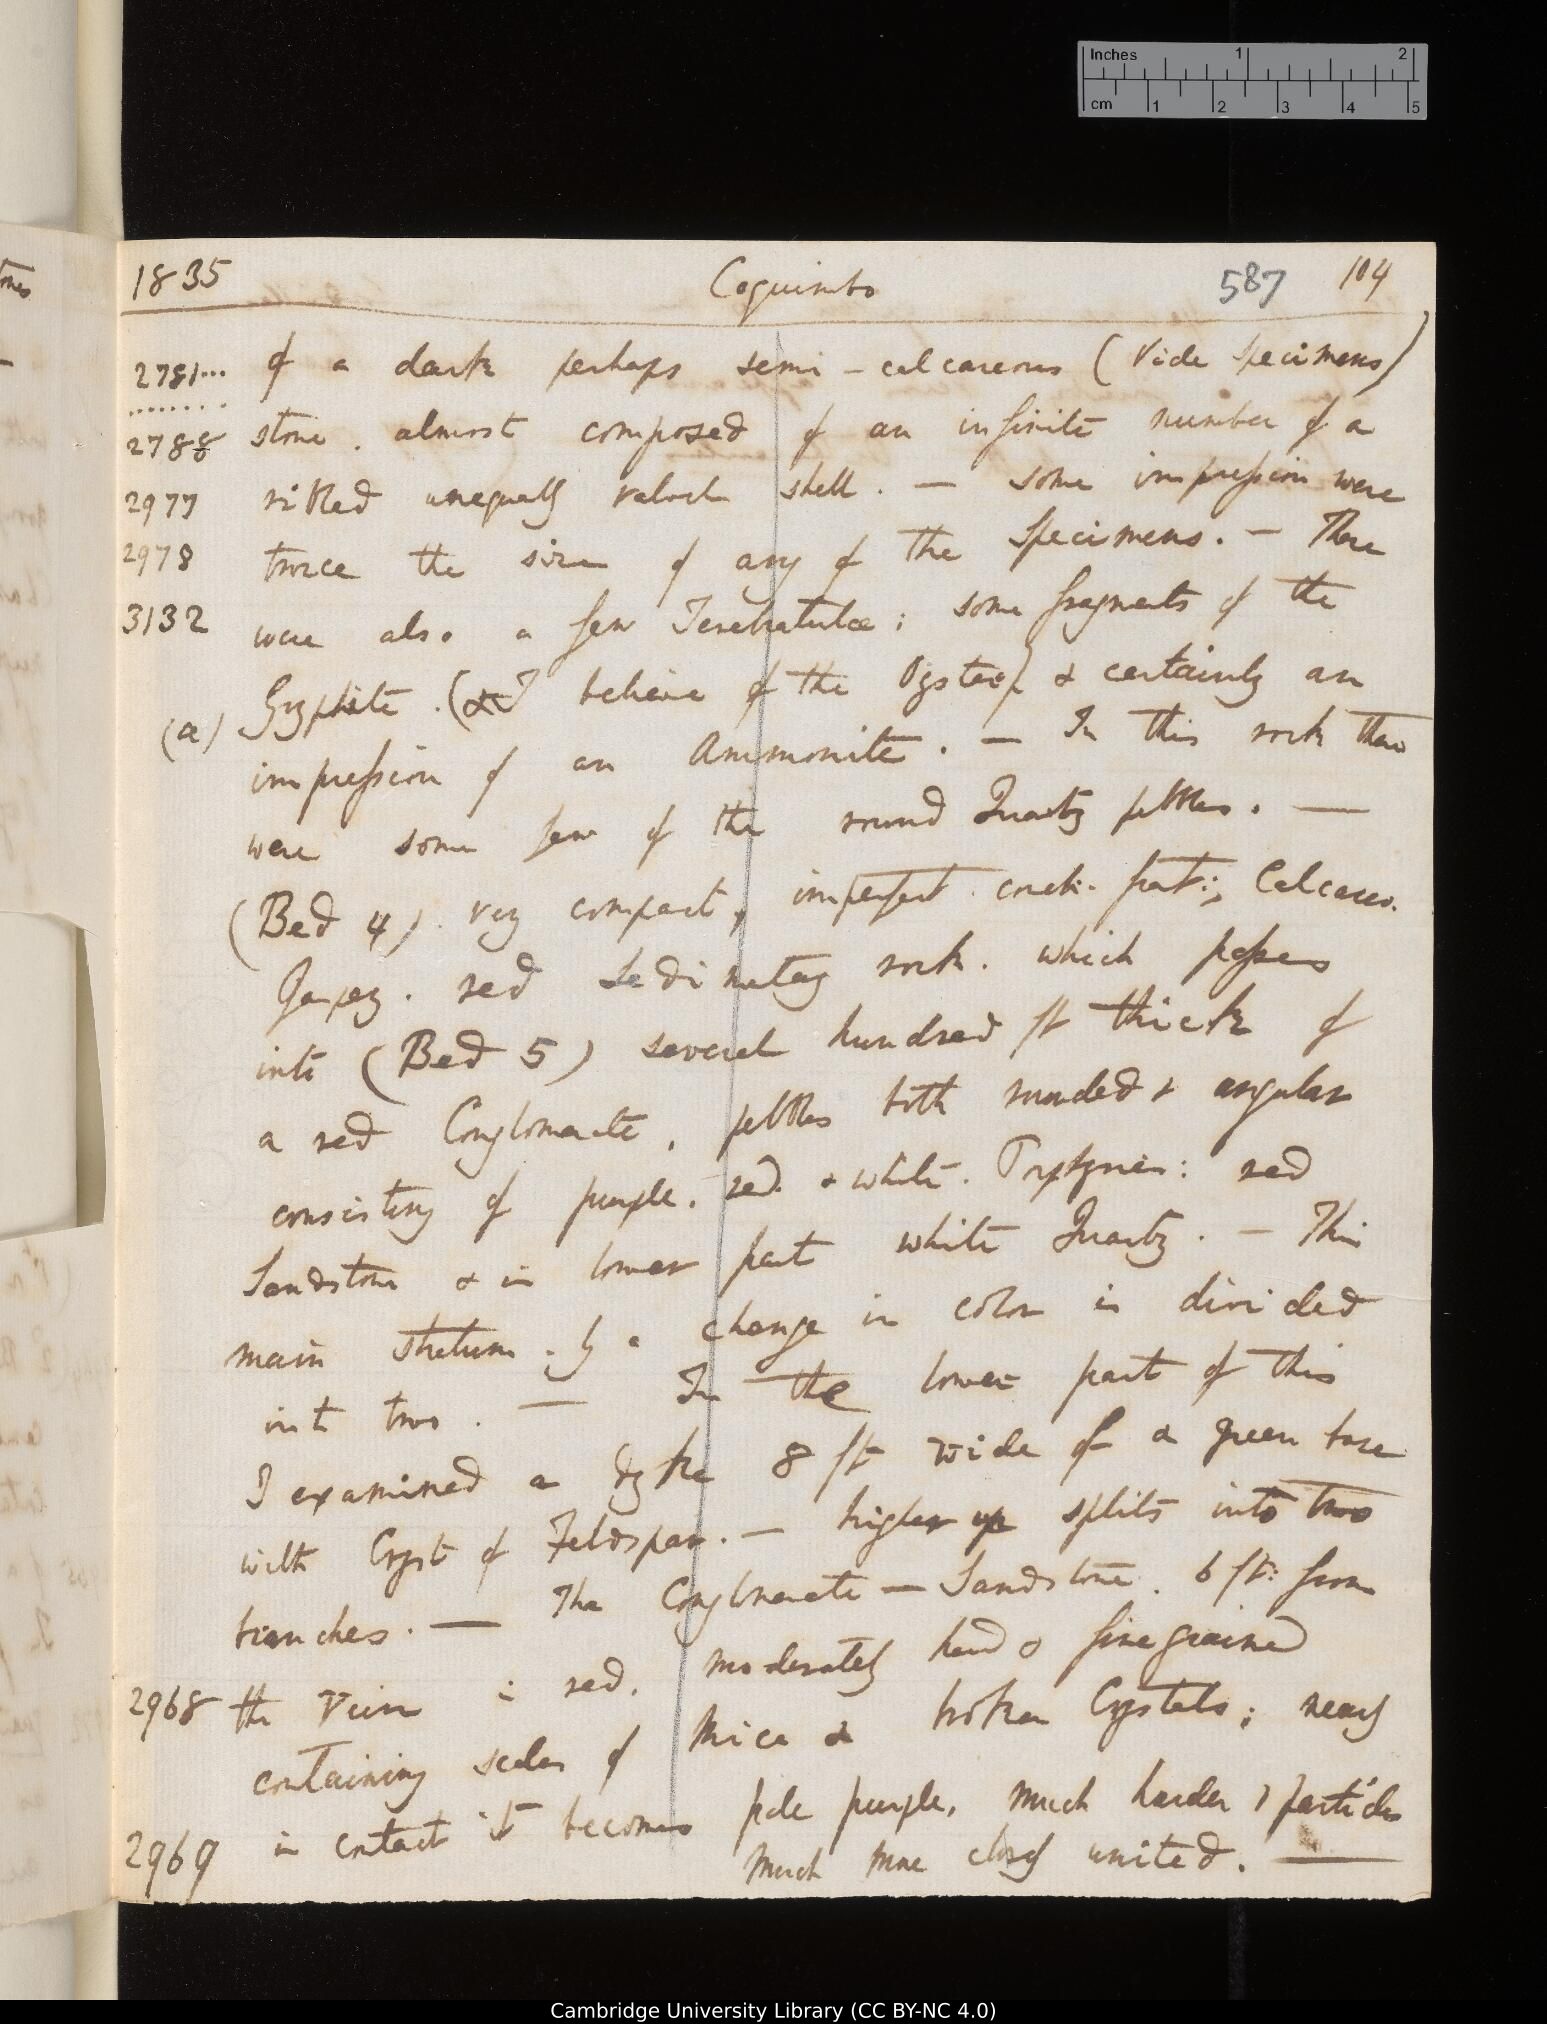 Inches 1 2
cm 1 2 3 4 5
1835 Coquimbo 587 104
2781... of a dark perhaps semi-calcareous (Vide Specimens)
........
2788 stone. almost composed of an infinite number of a
2977 ribbed unequally valved shell. — some impression were
2978 twice the size of any of the Specimens. — There
3132 were also a few Terebratulæ; some fragments of the
(a) Gryphite. (& I believe of the Oyster) & certainly an
impression of an Ammonite. — In this rock there
were some few of the round Quartz pebbles. —
(Bed 4). very compact, imperfect conch. fract:, Calcareo.
Jaspery. red Sedimetary rock. which passes
into (Bed 5) several hundred ft thick of
a red Conglomerate, pebbles both rounded & angular
consisting of purple. red. & white. Porphyries: red
Sandstone & in lower part white Quartz. — This
main stratum. by a change in color is divided
into two. — In the lower part of this
I examined a dyke 8 ft wide of a green base
with Cryst of Feldspar. — higher up splits into two
branches. — The Conglomerate — Sandstone. 6 ft: from
2968 the Vein is red, moderately hard & fine grained
containing scales of Mica & broken Crystals; nearly
2969 in contact it becomes pale purple, much harder & particles
much more closely united. —
Cambridge University Library (CC BY-NC 4.0)